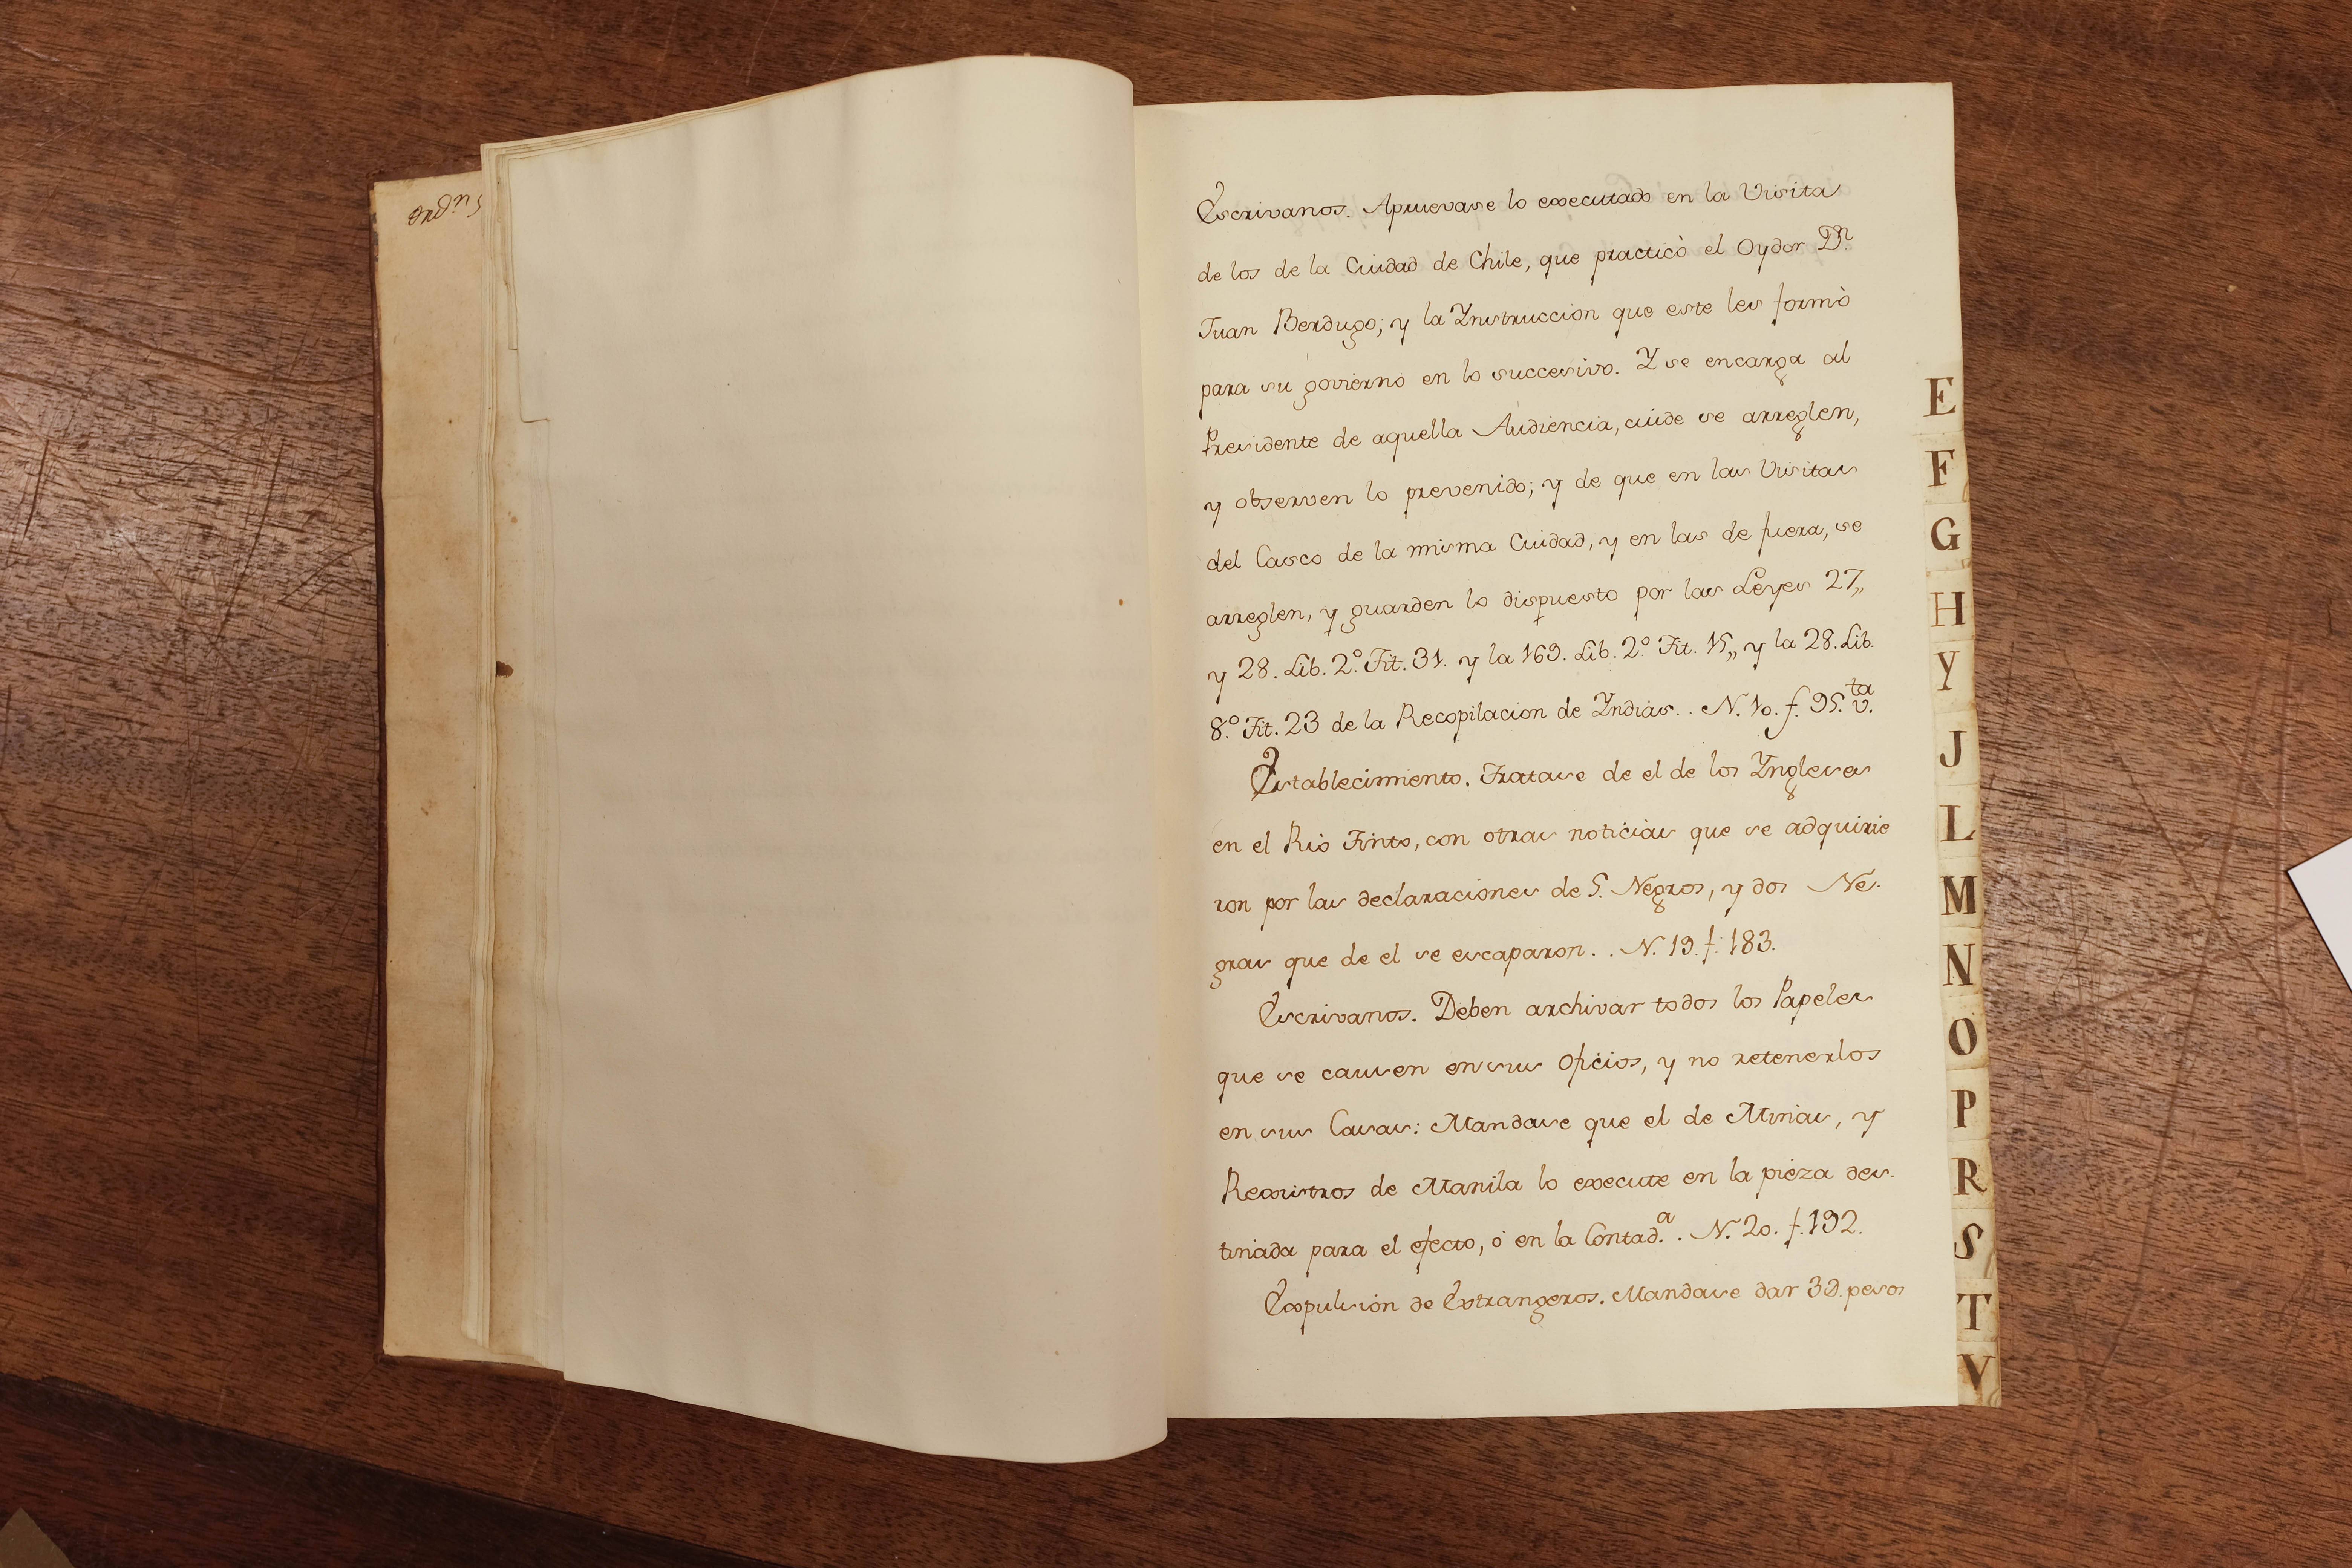 ordn s
Escrivanos. Apruevase lo executado en la Visita
de los de la Ciudad de Chile, que practicò el Oydor Dn.
Juan Berdugo; y la Ynstruccion que este les formò
para su govierno en lo succesivo. Y se encarga al
Presidente de aquella Audiencia, cuide se arreglen,
y observen lo prevenido; y de que en las Visitas
del Casco de la misma Ciudad, y en las de fuera, se
arreglen, y guarden lo dispuesto por las Leyes 27,,
y 28. Lib. 2.º Tit. 31. y la 169. Lib. 2.º Tit. 15,, y la 28. Lib.
8.º Tit. 23 de la Recopilacion de Yndias.. N. 10. f. 95. v.ta
Establecimiento. Tratase de el de los Yngleses
en el Rio Tinto, con otras noticias que se adquirie
ron por las declaraciones de 5. Negros, y dos Ne-
gras que de el se escaparon. . N. 19. f. 183.
Escrivanos. Deben archivar todos los Papeles
que se causen en sus Oficios, y no retenerlos
en sus Casas: Mandase que el de Minas, y
Rexistros de Manila lo execute en la pieza des-
tinada para el efecto, ó en la Contad.a. N. 20. f. 192.
Expulsion de Extrangeros. Mandase dar 3D. pesos
E
F
G
H
Y
J
L
M
N
O
P
R
S
T
V